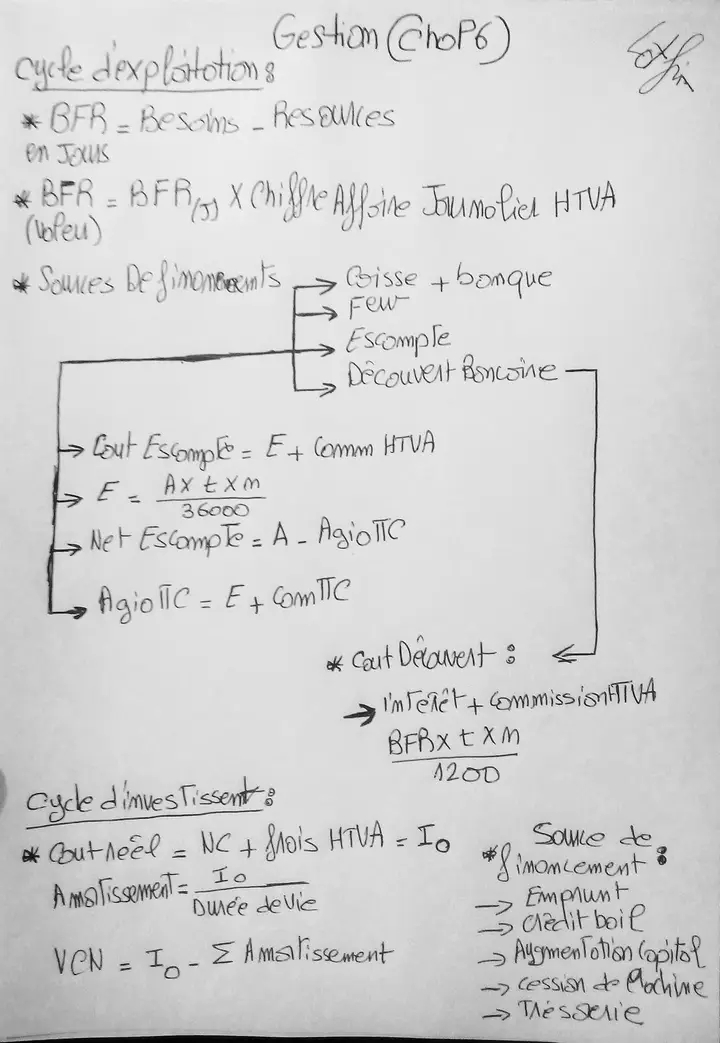 Gestion (Chap6)
Cycle d'exploitation :
* BFR = Besoins - Resources
en Jours
* BFR = BFR(J) X Chiffre Affaire Journalier HTVA
(Valeu)
* Sources De financements
→ Caisse + banque
→ Feur
→ Escompte
→ Découvert Bancaire
→ Cout Escompte = E + Comm HTVA
→ E = AX t X m
36000
→ Net Escompte = A - Agio TTC
→ Agio TTC = E + Com TTC
* Cout Découvert :
→ l'interêt + Commission HTVA
BFR X t X m
1200
Cycle d'investissent :
* Cout réel = NC + frais HTVA = I0
Amortissement = I0
Durée de Vie
VCN = I0 - Σ Amortissement
* Source de
financement :
→ Emprunt
→ Crédit bail
→ Augmentation Capital
→ Cession de Machine
→ Trésserie